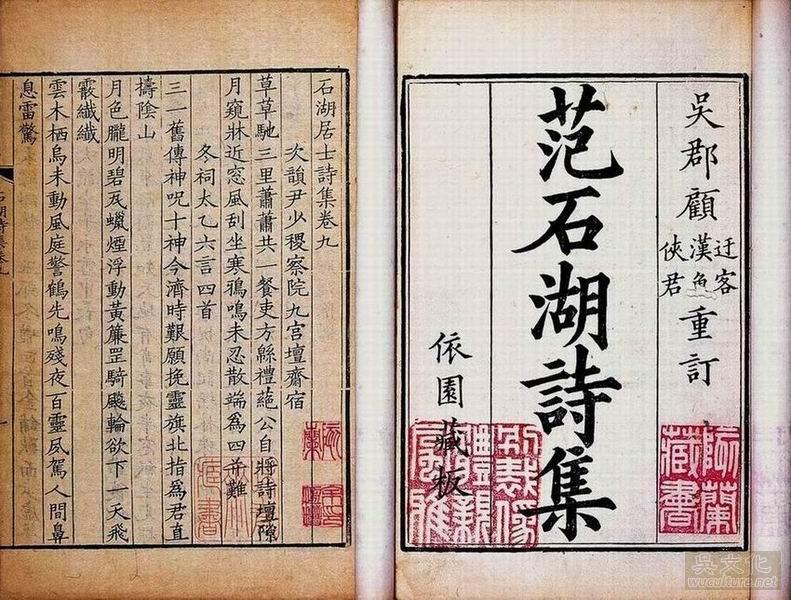 吳郡顧
迂客
漢魚
俠君
重訂
范石湖詩集
依園藏板
阿蘭藏書
別裁偽體親風雅
石湖居士詩集卷九
次韻尹少稷察院九宮壇齋宿
草草馳三里蕭蕭共一餐吏方緜禮蕝公自將詩壇隙
月窺牀近窓風刮坐寒鴉鳴未忍散端為四并難
冬祠太乙六言四首
三一舊傳神呪十神今濟時艱願挽靈旗北指為君直
擣陰山
月色朧明碧瓦蠟煙浮動黃簾罡騎飈輪欲下一天飛
霰纖纖
雲木栖烏未動風庭警鶴先鳴殘夜百靈夙駕人間鼻
息雷驚
石湖詩集卷九
吳文化
www.wuculture.net